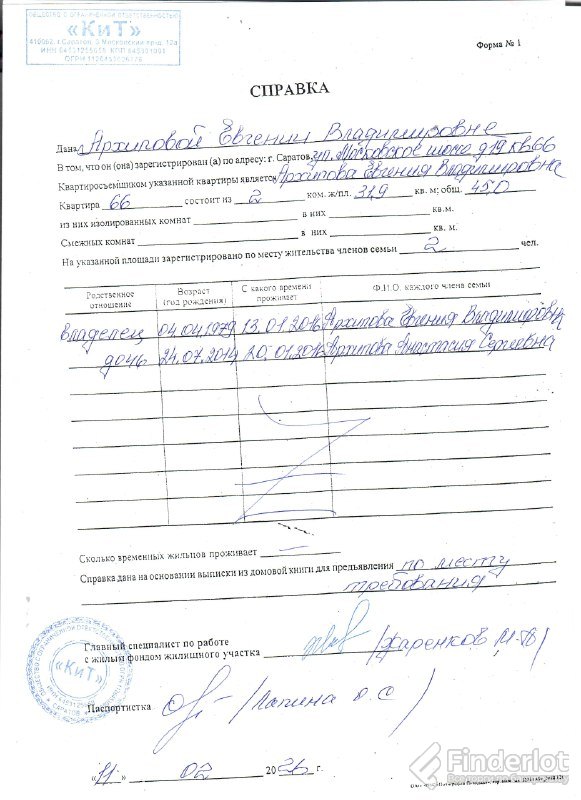 ОБЩЕСТВО С ОГРАНИЧЕННОЙ ОТВЕТСТВЕННОСТЬЮ
«КиТ»
Форма № 1
СПРАВКА
Дана Архиповой Евгении Владимировне
В том, что он (она) зарегистрирован (а) по адресу: г. Саратов, ул. Московское шоссе д 19 кв 66
Квартиросъемщиком указанной квартиры является Архипова Евгения Владимировна
Квартира 66 состоит из 2 ком. ж/пл. 31,9 кв. м; общ. 45,0
из них изолированных комнат в них кв.м.
Смежных комнат в них кв. м.
На указанной площади зарегистрировано по месту жительства членов семьи 2 чел.
Родственное отношение
Возраст (год рождения)
С какого времени проживает
Ф.И.О. каждого члена семьи
владелец 04.04.1979 13.01.2016 Архипова Евгения Владимировна
дочь 24.07.2014 20.01.2016 Архипова Анастасия Сергеевна
Сколько временных жильцов проживает —
Справка дана на основании выписки из домовой книги для предъявления по месту
требования
Главный специалист по работе
с жилым фондом жилищного участка /Харенков
«КиТ»
Паспортистка /Лапина О.С/
«11» 02 20 г.
Finderlot